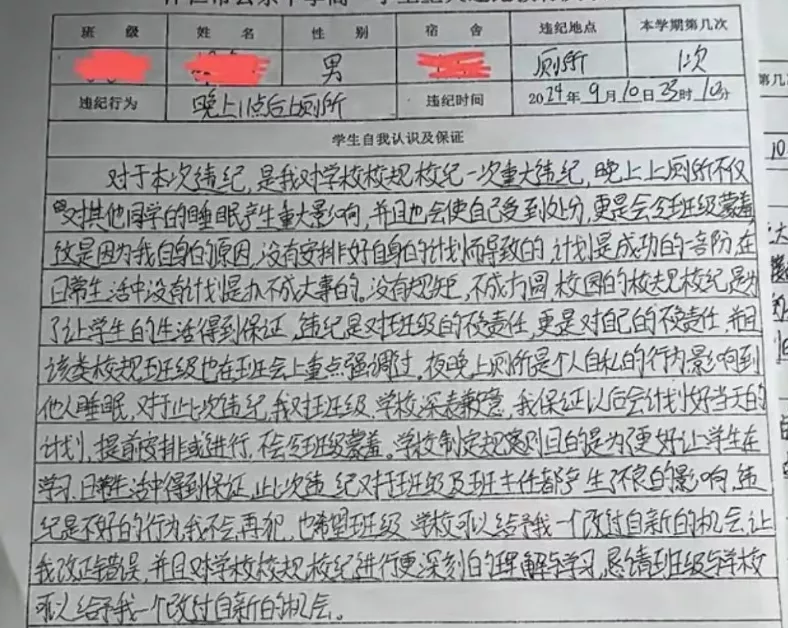 班 级 姓 名 性 别 宿 舍 违纪地点 本学期第几次
男 厕所 1次
违纪行为 晚上11点后上厕所 违纪时间 2024年9月10日23时10分
学生自我认识及保证
对于本次违纪,是我对学校校规校纪一次重大违纪,晚上上厕所不仅
对其他同学的睡眠产生重大影响,并且也会使自己受到处分,更是会令班级蒙羞
这是因为我自身的原因,没有安排好自身的计划而导致的,计划是成功的一部份,在
日常生活中没有计划是办不成大事的。没有规矩,不成方圆,校园的校规校纪是为
了让学生的生活得到保证,违纪是对班级的不负责任,更是对自己的不负责任,并且
该类校规班级也在班会上重点强调过,夜晚上厕所是个人自私的行为影响到
他人睡眠,对于此次违纪,我对班级、学校深表歉意,我保证以后会计划好当天的
计划,提前安排或进行,不会令班级蒙羞。学校制定规章则目的是为了更好让学生在
学习、日常生活中得到保证,此次违纪对于班级及班主任都产生了不良的影响,违
纪是不好的行为,我不会再犯,也希望班级 学校可以给予我一个改过自新的机会,让
我改正错误,并且对学校校规校纪进行更深刻的理解与学习,恳请班级与学校
可以给予我一个改过自新的机会。
第几
10